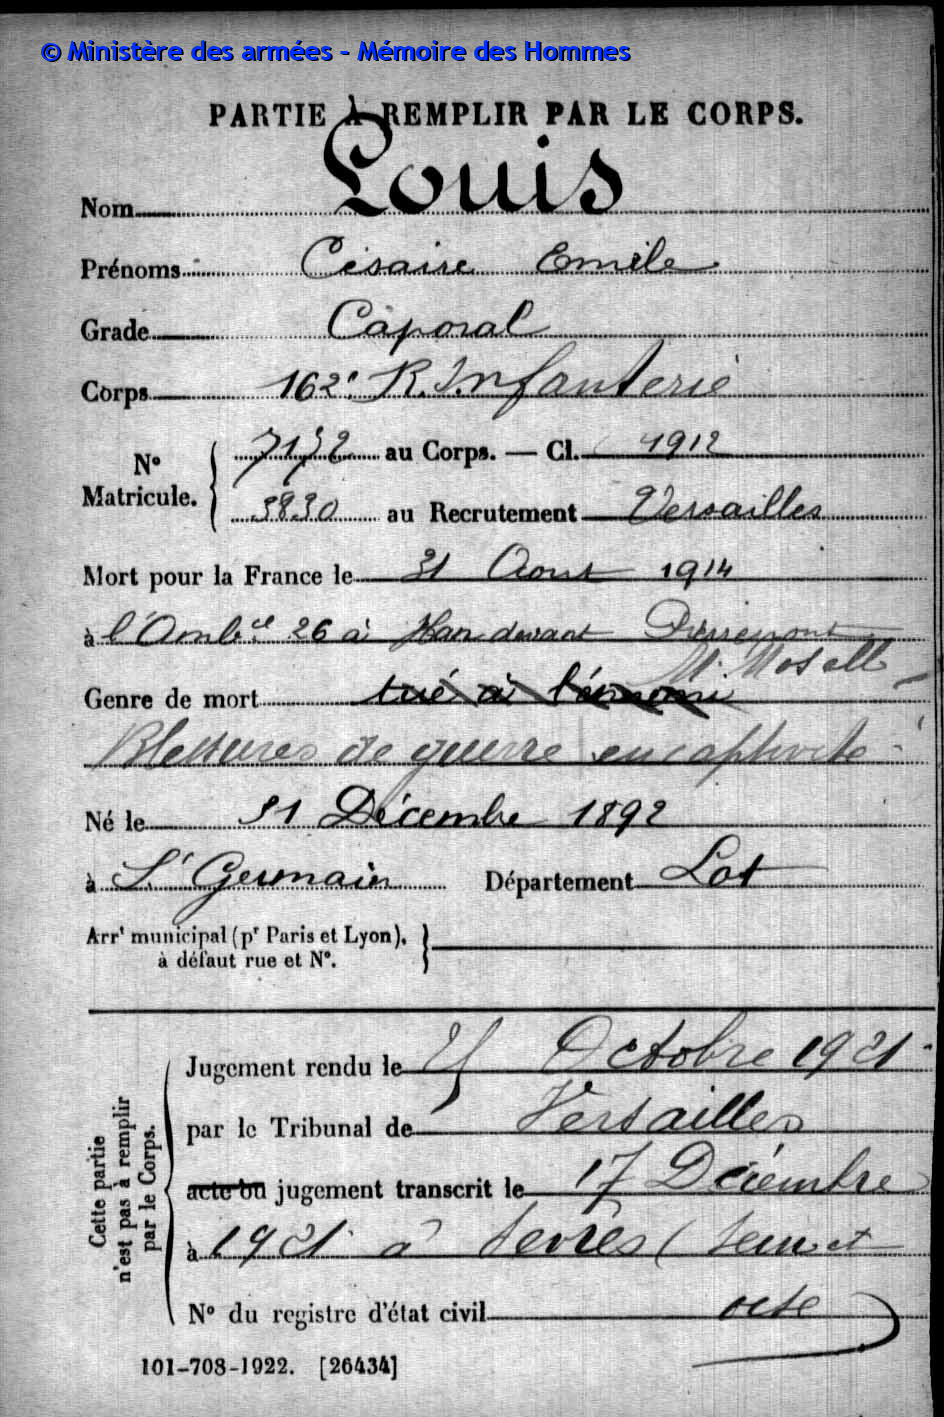 © Ministère des armées - Mémoire des Hommes
PARTIE À REMPLIR PAR LE CORPS.
Nom Louis
Prénoms Césaire Emile
Grade Caporal
Corps 162e R. Infanterie
N° Matricule. 7172 au Corps. — Cl. 1912
3830 au Recrutement Versailles
Mort pour la France le 31 Aout 1914
à l'Amb.ce 26 à Han devant Pierrepont
Mt Moselle
Genre de mort tué à l'ennemi
Blessures de guerre en captivité
Né le 31 Décembre 1892
à St Germain Département Lot
Arrt municipal (pr Paris et Lyon),
à défaut rue et N°.
Cette partie n'est pas à remplir par le Corps.
Jugement rendu le Octobre 1921
par le Tribunal de Versailles
acte ou jugement transcrit le 17 Décembre
à 1921 à Sevres (Seine et
N° du registre d'état civil oise)
101-708-1922. [26434]